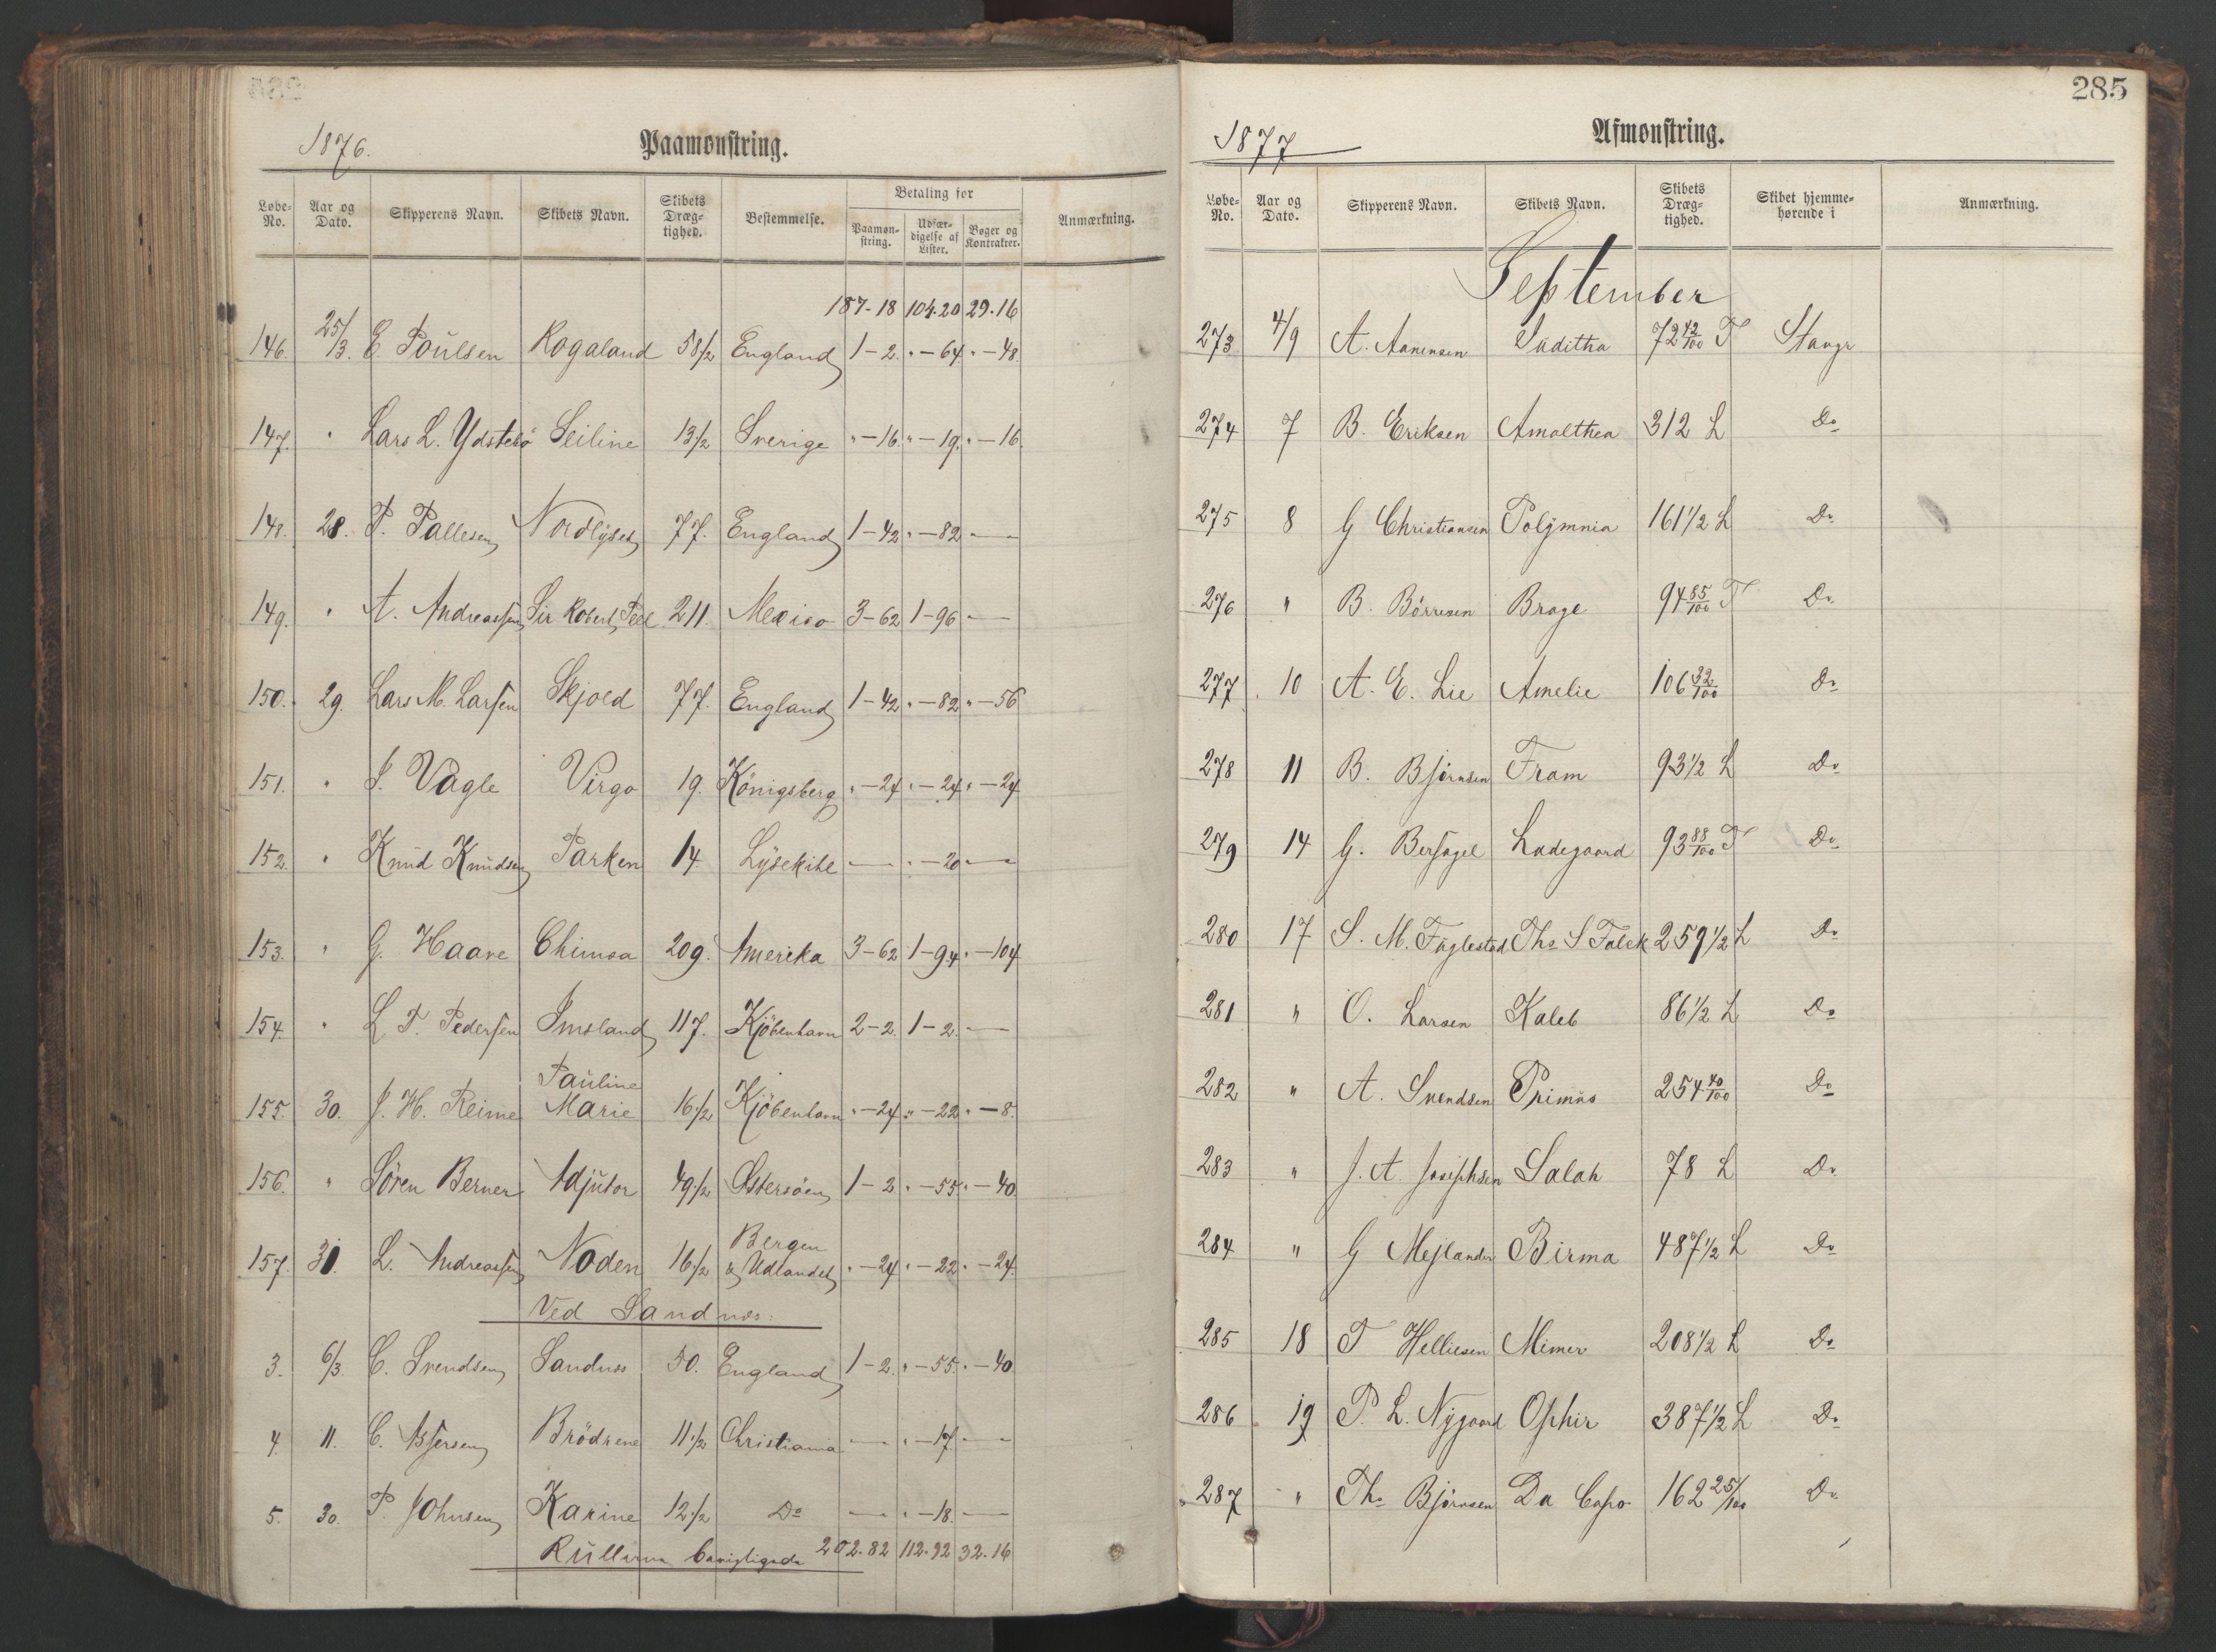 1876. Paamønstring.
Løbe-No. Aar og Dato. Skipperens Navn. Skibets Navn. Skibets Dræg-tighed. Bestemmelse. Betaling for Paamøn-string. Udfær-digelse af Lister. Bøger og Kontrakter. Anmærkning.
187-18 104.20 29.16
146. 25/3. E. Poulsen Rogaland 58 1/2 England 1-2. " -64. " -48
147. " Lars L. Ydstebö Seiline 13 1/2 Sverige " -16. " -19. " -16.
148. 28. P. Pallesen Nordlyset 77. England 1-42 " -82 " —
149. " A. Andreassen Sir Robert Peel 211. Mexico 3-62 1-96 " —
150. 29. Lars M. Larsen Skjold 77. England 1-42 " -82 " -56
151. " J. Vagle Virgo 19. Königsberg " -24 " -24 " -24
152. " Knud Knudsen Parken 14 Lysekihl — " -20 —
153. " G. Haave Chimæa 209. Amerika 3-62 1-94 " -104
154. " L. T. Pedersen Imsland 117. Kjöbenhavn 2-2. 1-2. —
155. 30. J. H. Reime Pauline Marie 16 1/2 Kjöbenhavn " -24 " -22 " -8.
156. " Sören Berner Adjutor 49 1/2 Östersöen 1-2 " -55 " -40
157. 31. L. Andreassen Noden 16 1/2 Bergen & Udlandet " -24 " -22 " -24.
Ved Sandnæs.
3. 6/3. C. Svendsen Sandnæs 50. England 1-2. " -55. " -40.
4. 11. C. Assersen Brödrene 11 1/2 Christiania — " -17 —
5. 30. P. Johnsen Karine 12 1/2 Do — " -18. —
202.82 112.92 32.16
285
1877 Afmønstring.
Løbe-No. Aar og Dato. Skipperens Navn. Skibets Navn. Skibets Dræg-tighed. Skibet hjemme-hørende i Anmærkning.
September
273 4/9 A. Aanensen Juditha 72 42/100 T Stavgr
274 7 B. Eriksen Amalthea 312 L Do
275 8 G Christiansen Polymnia 161 1/2 L Do
276 " B. Börresen Brage 94 85/100 T Do
277 10 A. E. Lie Amelie 106 32/100 Do
278 11 B. Björnsen Fram 93 1/2 L Do
279 14 G. Bersagel Ladegaard 93 88/100 T Do
280 17 S. M. Fuglestad Ths S Falck 259 1/2 L Do
281 " O. Larsen Kaleb 86 1/2 L Do
282 " A. Svendsen Primus 254 40/100 Do
283 " J. A. Josephsen Salah 78 L Do
284 " G Mejlænder Birma 487 1/2 L Do
285 18 T Helliesen Mimer 208 1/2 L Do
286 19 P. L. Nygaard Ophir 387 1/2 L Do
287 " Ths Björnsen Da Capo 162 25/100 Do